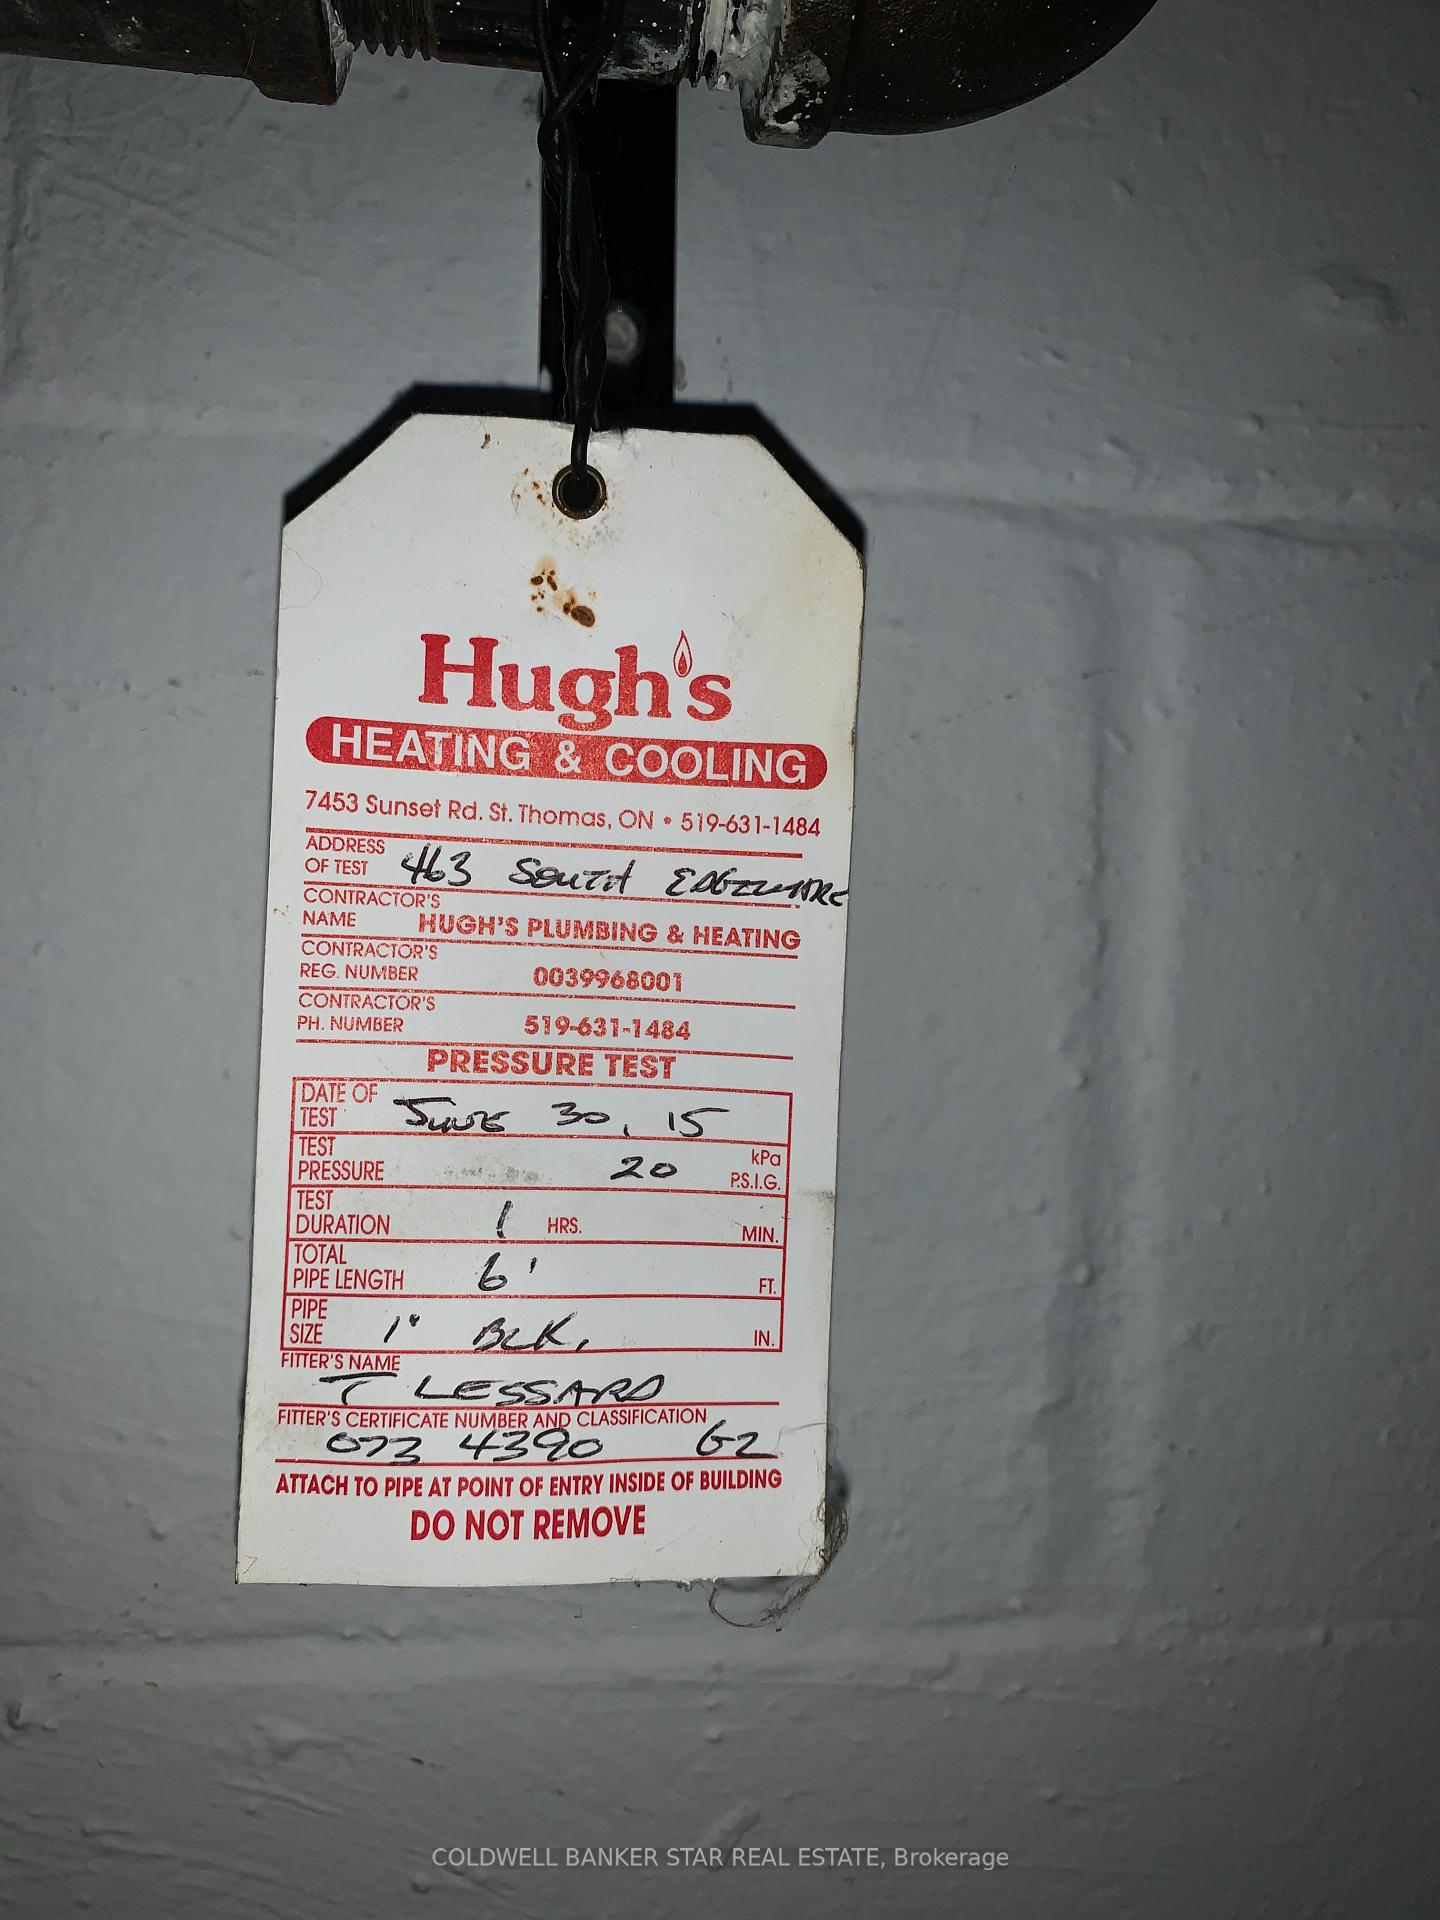 Hugh's
HEATING & COOLING
7453 Sunset Rd. St. Thomas, ON • 519-631-1484
ADDRESS OF TEST 463 SOUTH EDGEWARE
CONTRACTOR'S NAME HUGH'S PLUMBING & HEATING
CONTRACTOR'S REG. NUMBER 0039968001
CONTRACTOR'S PH. NUMBER 519-631-1484
PRESSURE TEST
DATE OF TEST JUNE 30, 15
TEST PRESSURE 20 kPa P.S.I.G.
TEST DURATION 1 HRS. MIN.
TOTAL PIPE LENGTH 6' FT.
PIPE SIZE 1" BLK. IN.
FITTER'S NAME
T LESSARD
FITTER'S CERTIFICATE NUMBER AND CLASSIFICATION
073 4390 G2
ATTACH TO PIPE AT POINT OF ENTRY INSIDE OF BUILDING
DO NOT REMOVE
COLDWELL BANKER STAR REAL ESTATE, Brokerage